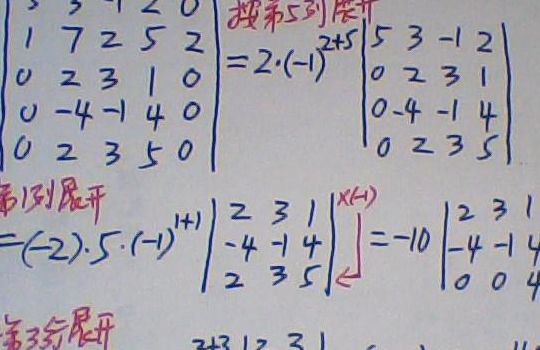 5 3 -1 2 0
1 7 2 5 2
0 2 3 1 0
0 -4 -1 4 0
0 2 3 5 0
按第5列展开
=2·(-1)^{2+5}
5 3 -1 2
0 2 3 1
0 -4 -1 4
0 2 3 5
第1列展开
=(-2)·5·(-1)^{1+1}
2 3 1
-4 -1 4
2 3 5
×(-1)
=-10
2 3 1
-4 -1 4
0 0 4
第3行展开
2+3 2 3